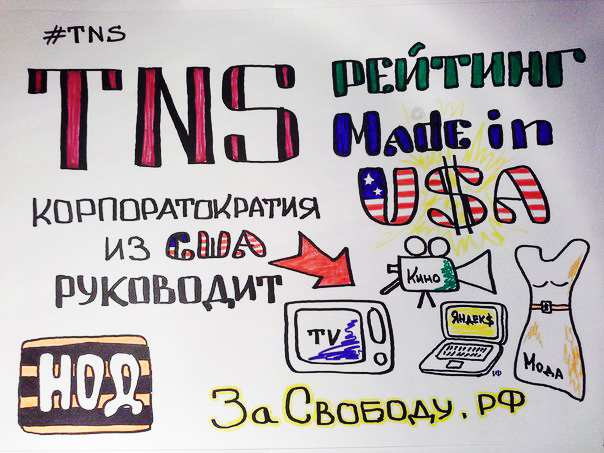 #TNS
TNS
РЕЙТИНГ
Made in
U$A
КОРПОРАТОКРАТИЯ
ИЗ США
РУКОВОДИТ
Кино
TV
ЯНДЕК$
Мода
НОД
За Свободу.РФ